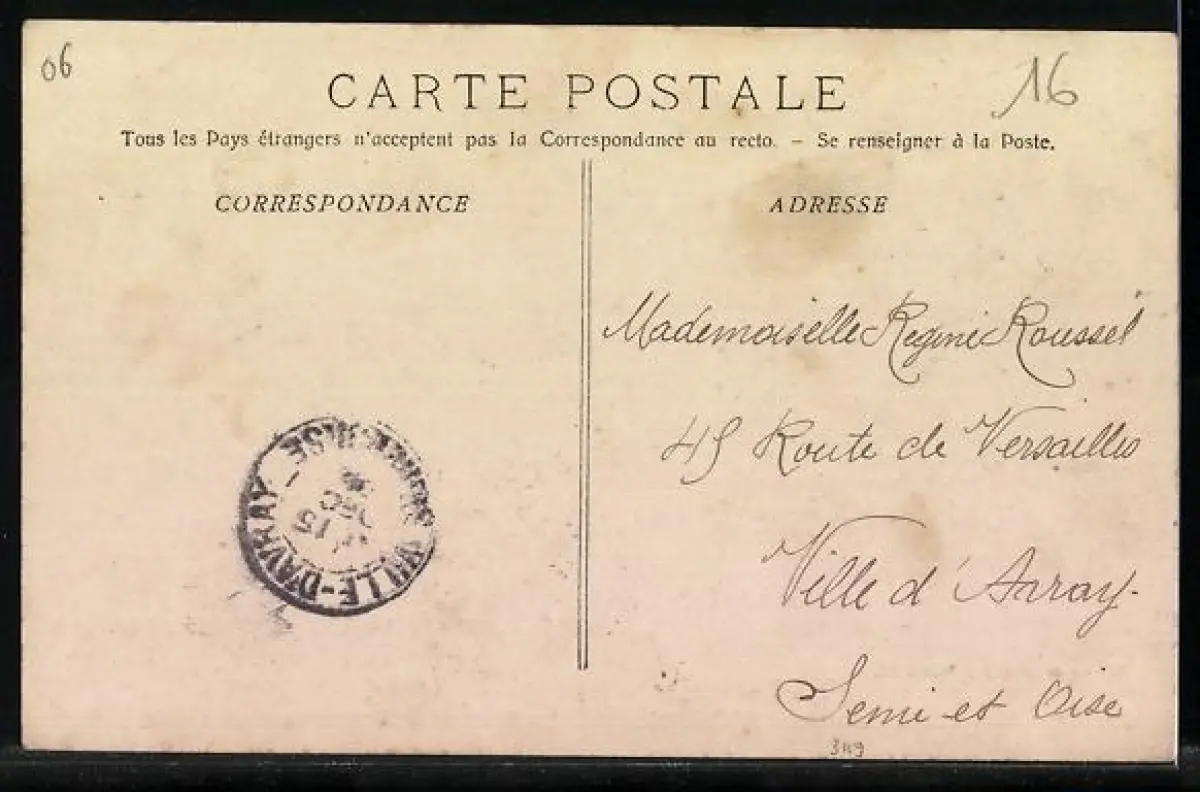 06
16
CARTE POSTALE
Tous les Pays étrangers n'acceptent pas la Correspondance au recto. — Se renseigner à la Poste.
CORRESPONDANCE
ADRESSE
Mademoiselle Regine Roussel
45 Route de Versailles
Ville d'Avray-
Seine et Oise
VILLE-D'AVRAY
15
DEC
349